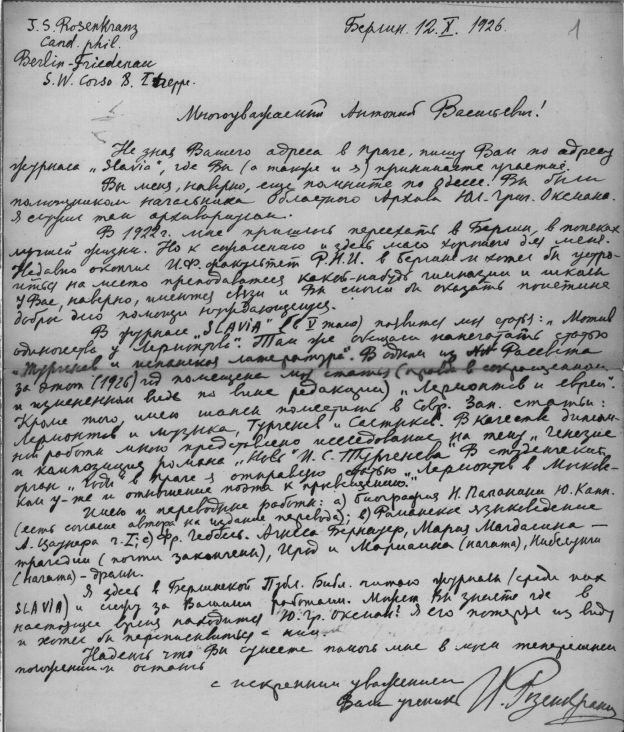 J. S. Rosenkranz
Cand. phil.
Berlin-Friedenau
S.W. Corso 8. I Treppe.
Берлин. 12. X. 1926.
1
Многоуважаемый Антоний Васильевич!
Не зная Вашего адреса в Праге, пишу Вам по адресу
журнала „Slavia“, где Вы (а также и я) принимаете участие.
Вы меня, наверно, еще помните по Одессе. Вы были
помощником начальника Областного Архива Юл. Григ. Оксмана.
Я служил там архивариусом.
В 1922 г. мне пришлось переехать в Берлин, в поисках
лучшей жизни. Но к сожалению и здесь мало хорошего для меня.
Недавно окончил И.Ф. факультет Р.Н.И. в Берлине и хотел бы устро-
иться на место преподавателя какой-нибудь гимназии и школы
У Вас, наверно, имеются связи и Вы смогли бы оказать поистине
доброе дело помощи нуждающимся.
В журнале „SLAVIA“ (в V томе) появится моя статья: „Мотив
одиночества у Лермонтова“. Там же обещали напечатать статью
„Тургенев и испанская литература“. В одном из Рассвета
за этот (1926) год помещена моя статья (правда в сокращенном
и измененном виде по вине редакции) „Лермонтов и евреи“.
Кроме того, имею шансы поместить в Совр. Зап. статьи:
Лермонтов и музыка, Тургенев и В качестве диплом-
ной работы мною представлено исследование на тему „Генезис
и композиция романа „Новь“ И. С. Тургенева“. В студенческий
орган „Годы“ в Праге я отправляю статью „Лермонтов в Москов-
ком у-те и отношение поэта к просвещению.“
Имею и переводные работы: а) биография Н. Паганини Ю. Капп.
(есть согласие автора на издание перевода); в) Романское языковедение
А. Цаунера ч. I; с) Фр. Геббель. Агнесса Бернауер, Мария Магдалина —
трагедии (почти закончены), Ирод и Мариамна (начата), Нибелунги
(начата) – драмы.
Я здесь в Берлинской Публ. Библ. читаю журналы (среди них
SLAVIA) и слежу за Вашими работами. Может Вы знаете где в
настоящее время находится Ю. Гр. Оксман? Я его потерял из виду
и хотел бы переписываться с ним.
Надеюсь что Вы сумеете помочь мне в моем теперешнем
положении и остаюсь
с искренним уважением
Ваш ученик И. Розенкранц